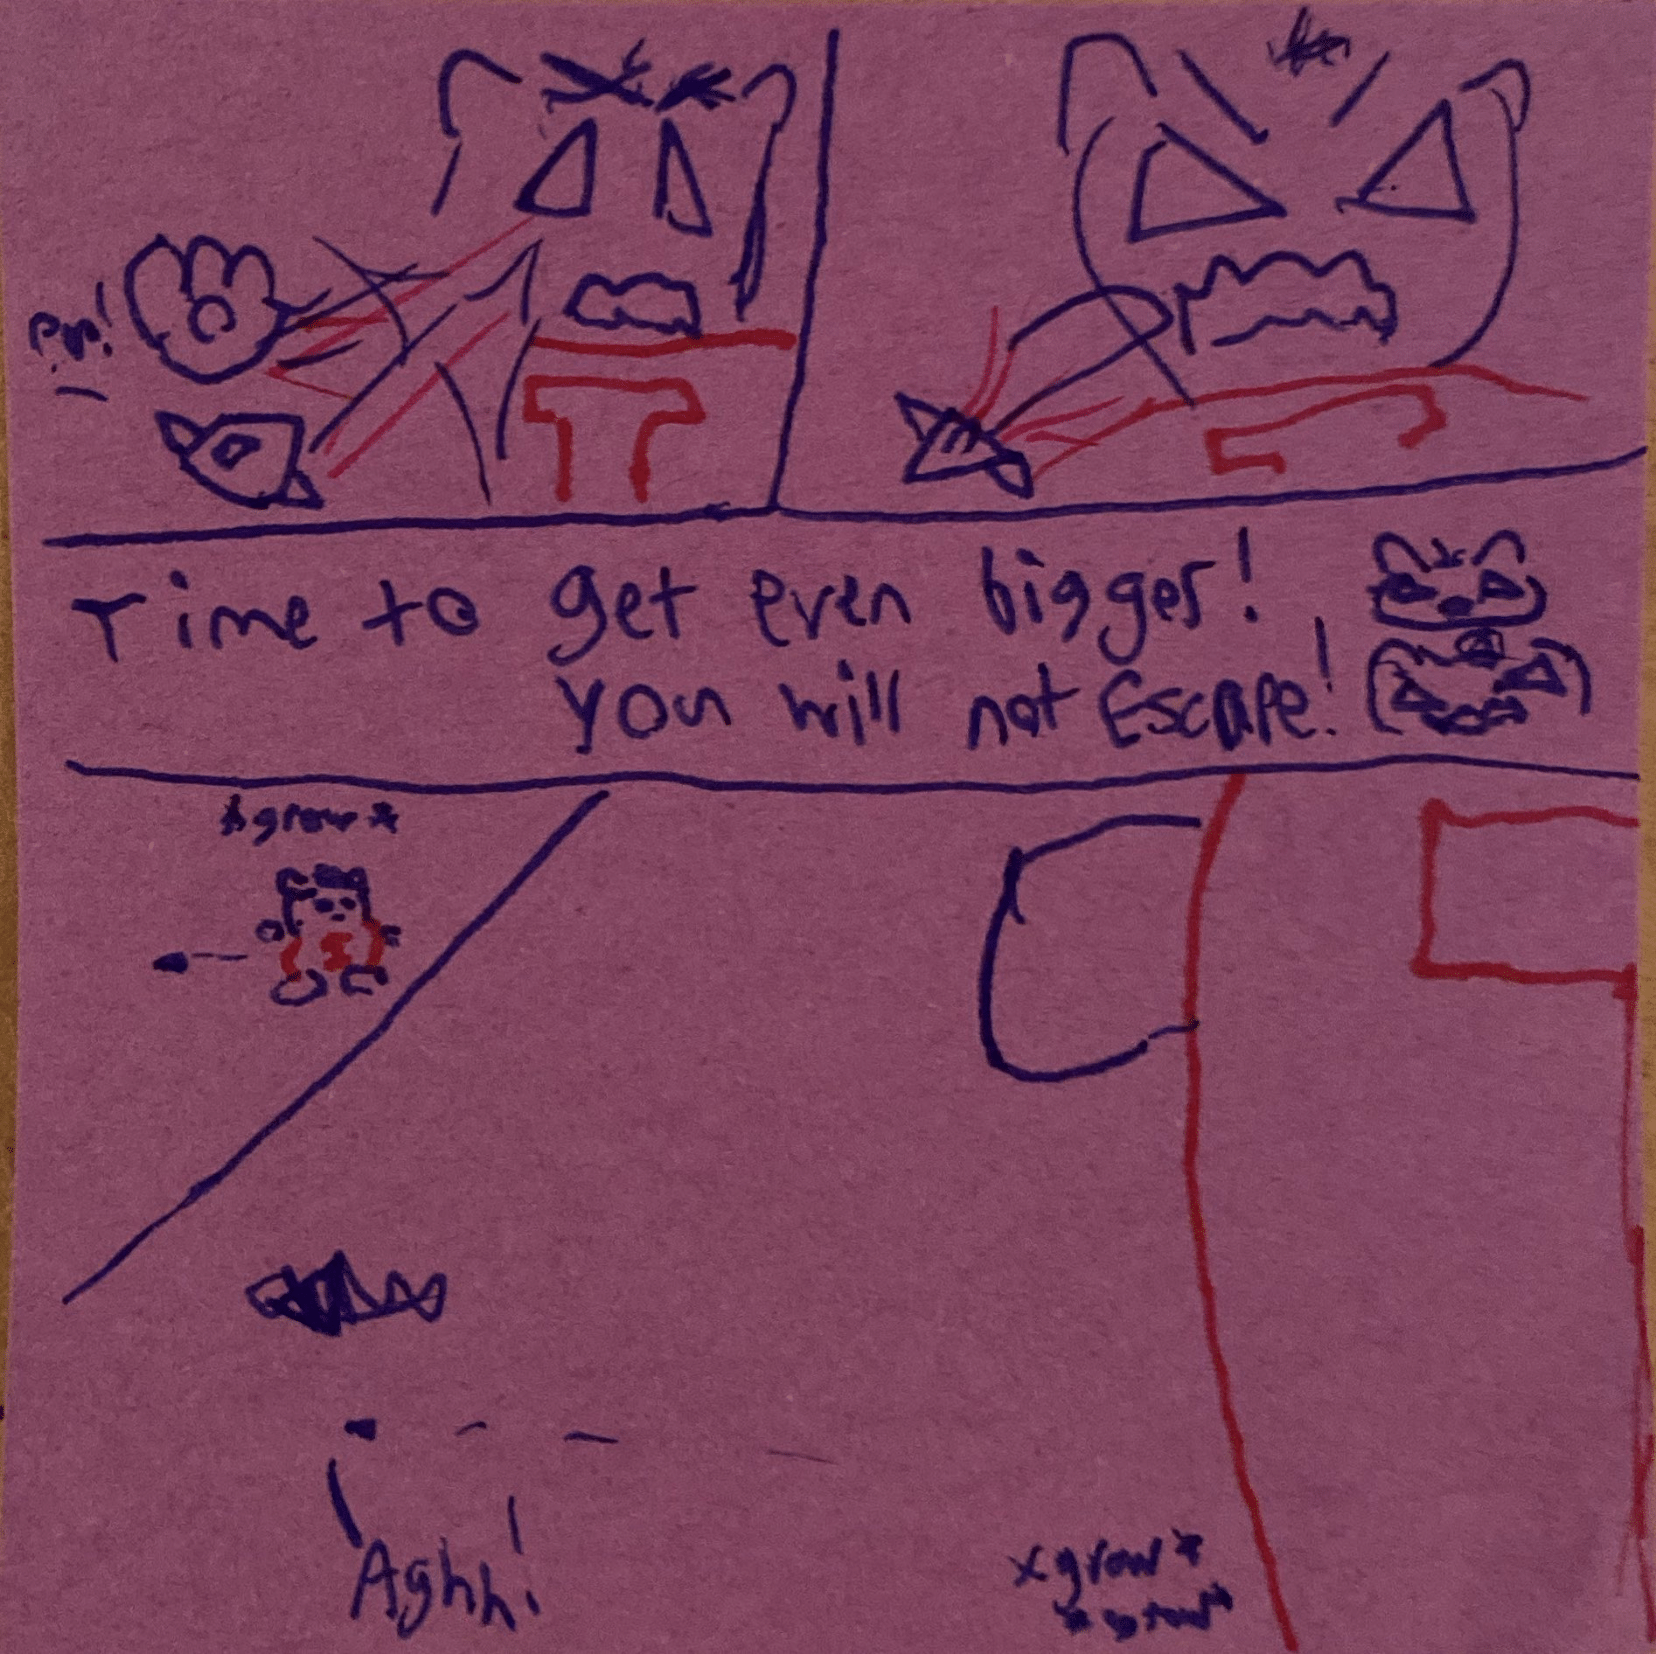 Time to get even bigger!
you will not Escape!
*grow*
Aghh!
*grow*
*grow*